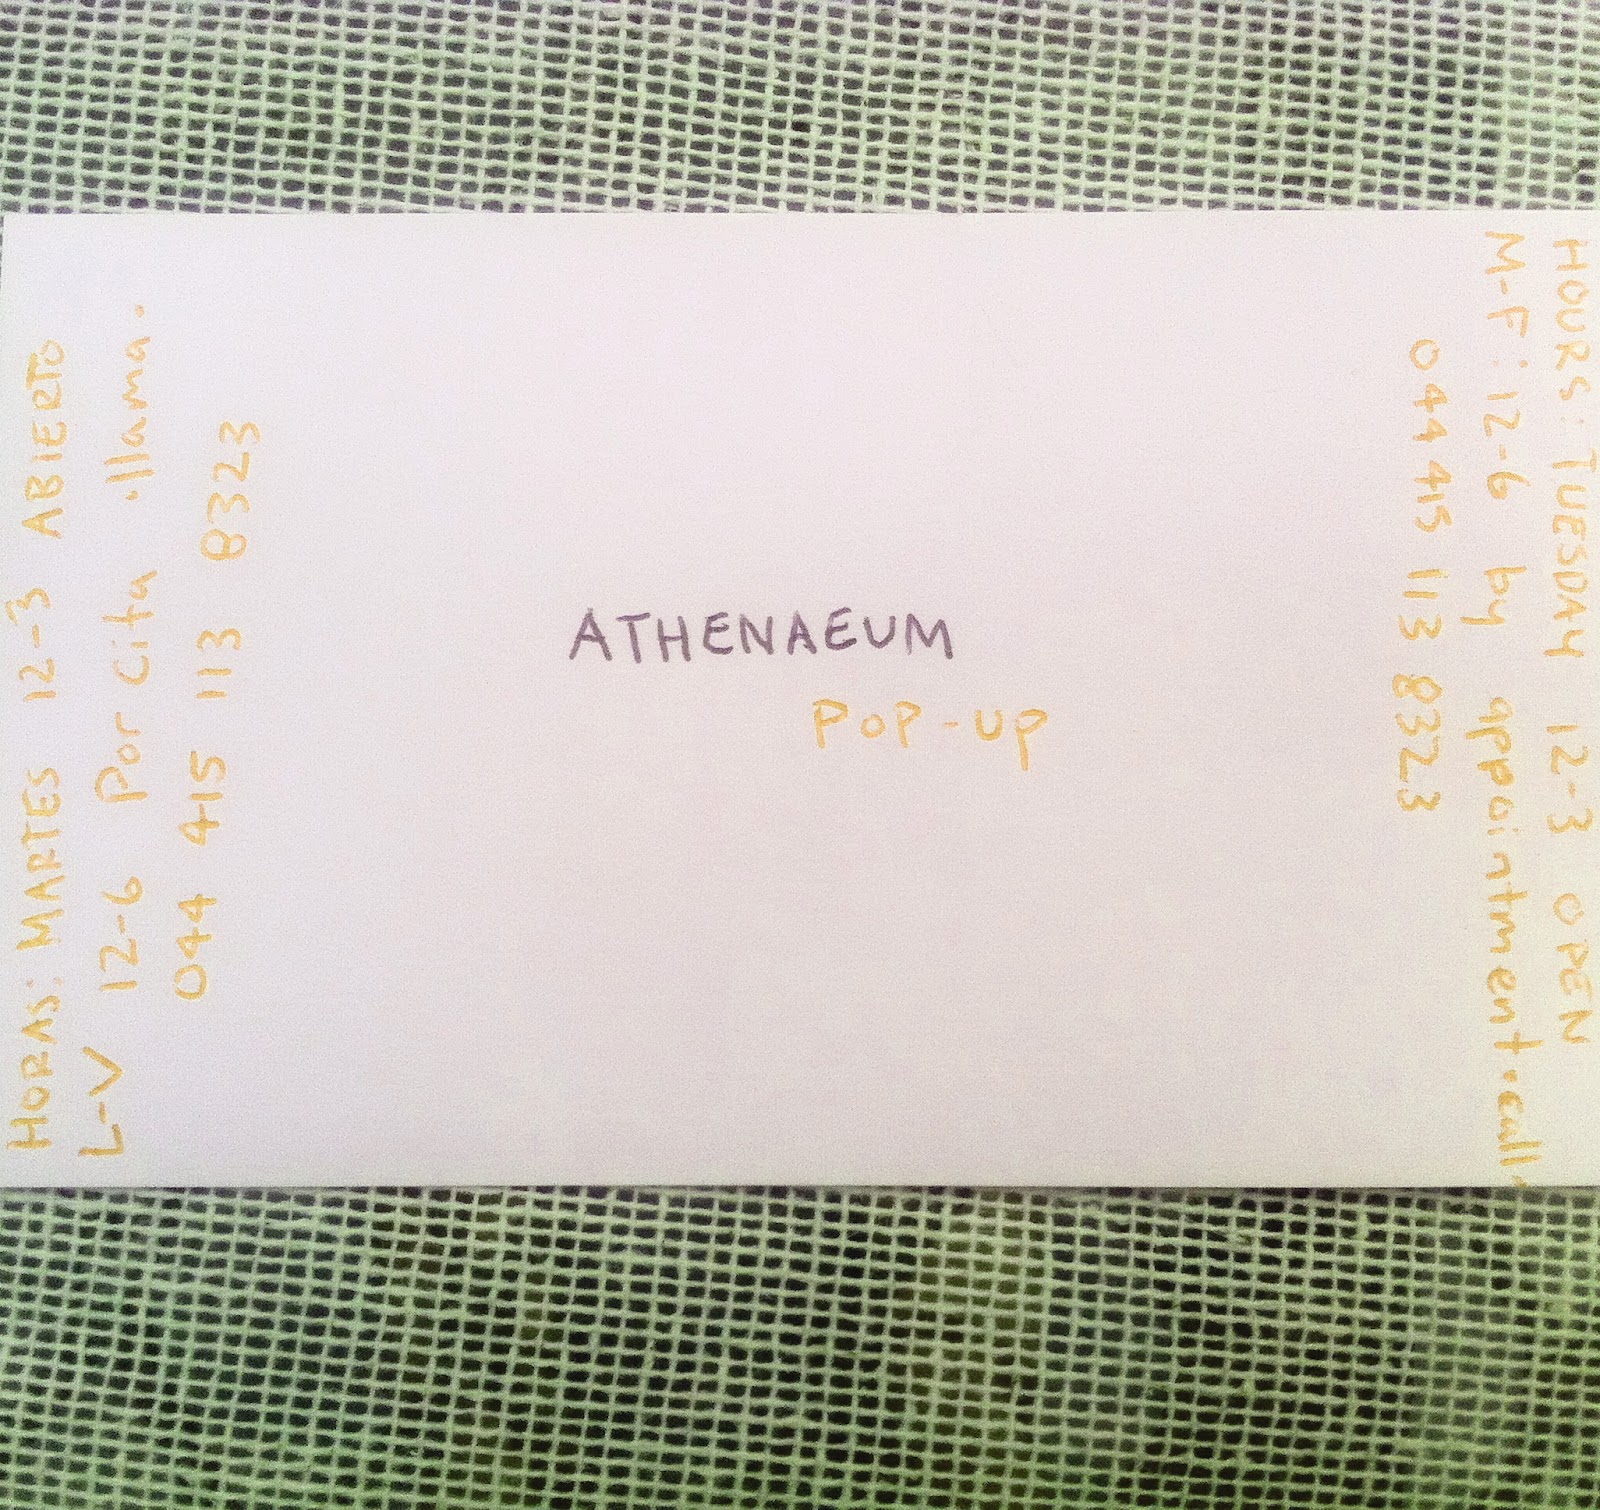 HORAS: MARTES 12-3 ABIERTO
L-V 12-6 Por Cita .llama.
044 415 113 8323
ATHENAEUM
POP-UP
HOURS: TUESDAY 12-3 OPEN
M-F: 12-6 by appointment.call.
044 415 113 8323